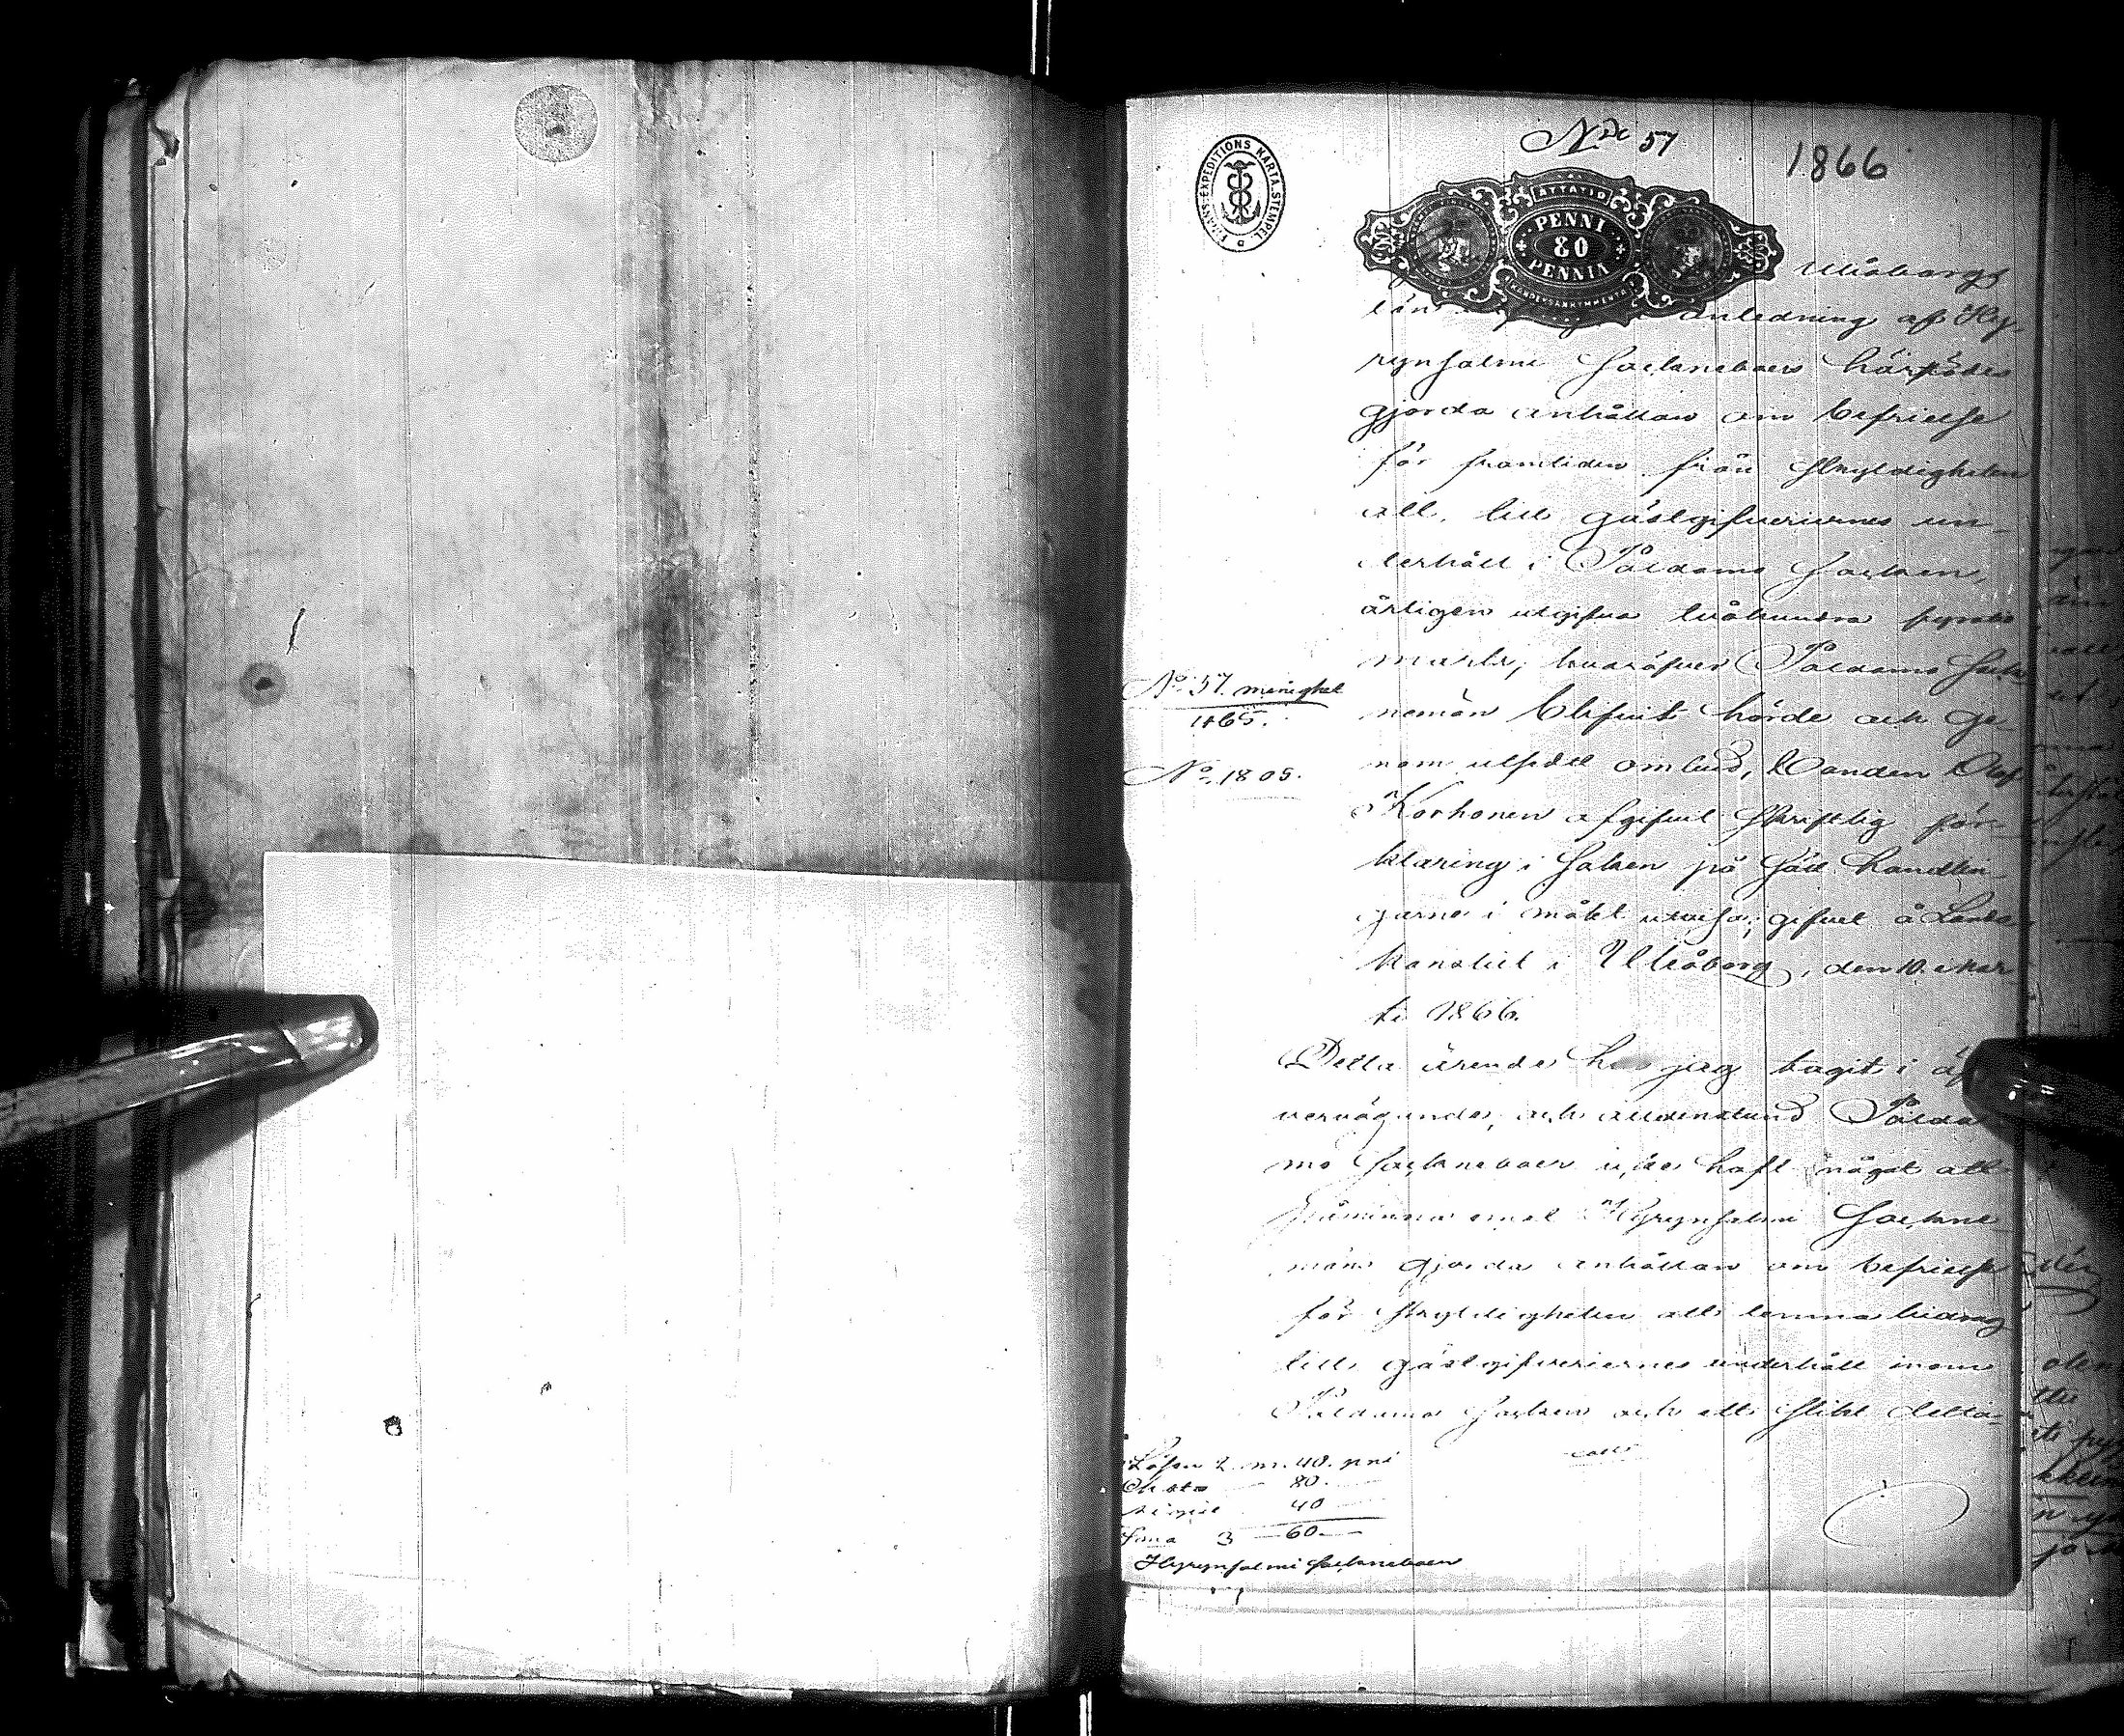 Nro 57
1866
FINANS-EXPEDITIONS KARTA STEMPEL
ÅTTATIO
PENNI
80
PENNIÄ
KAHDEKSANKYMMENTÄ
Uleåborgs
län anledning af Hy-
rynsalmi Socknebors härstädes
gjorda anhållan om befrielse
för framtiden från skyldigheten
att, till gästgifveriernes un-
derhåll i Påldamo Socken,
årligen utgifva tvåhundra fyratio
mark; hvaröfver Påldamo Sock-
nemän blifvit hörde och ge-
nom utsedt ombud, Bonden Olof
Korhonen afgifvit skriftlig för-
klaring i saken på sätt handlin-
garne i målet utvisa; gifvet å Lands-
kansliet i Uleåborg, den 10 Mar-
ti 1866.
Detta ärende har jag tagit i öf-
vervägande, och alldenstund Pålda-
mo Socknebor icke haft något att
påminna emot Hyrynsalmi Sockne-
mäns gjorda anhållan om befrielse
för skyldigheten att lemna bidrag
till gästgifveriernes underhåll inom
Påldamo Socken och ett slikt delta-
No 57
1865.
No 1805.
Lösen 2 m. 40. pni
Charta 80.
40
Sma 3 60
Hyrynsalmi Socknebor